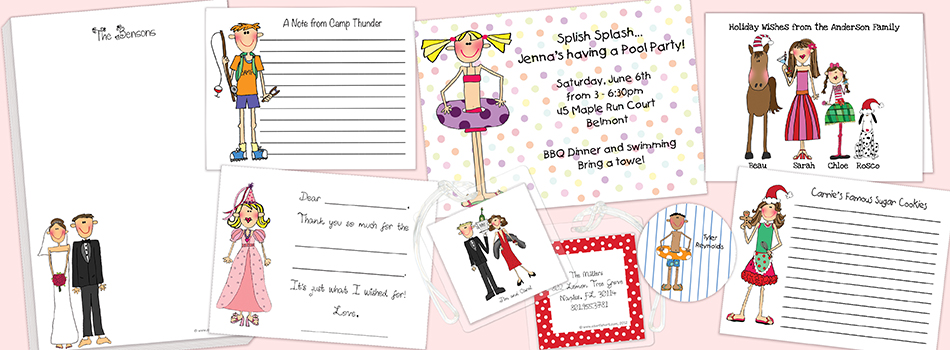 The Bensons
A Note from Camp Thunder
Splish Splash...
Jenna's having a Pool Party!
Saturday, June 6th
from 3 - 6:30pm
45 Maple Run Court
Belmont
BBQ Dinner and swimming
Bring a towel
Holiday Wishes from the Anderson Family
Beau Sarah Chloe Rosco
Dear
Thank you so much for the
It's just what I wished for!
Love,
and
The Millers
Lemon Tree Grove
FL 32014
Tyler
Reynolds
Carrie's Famous Sugar Cookies